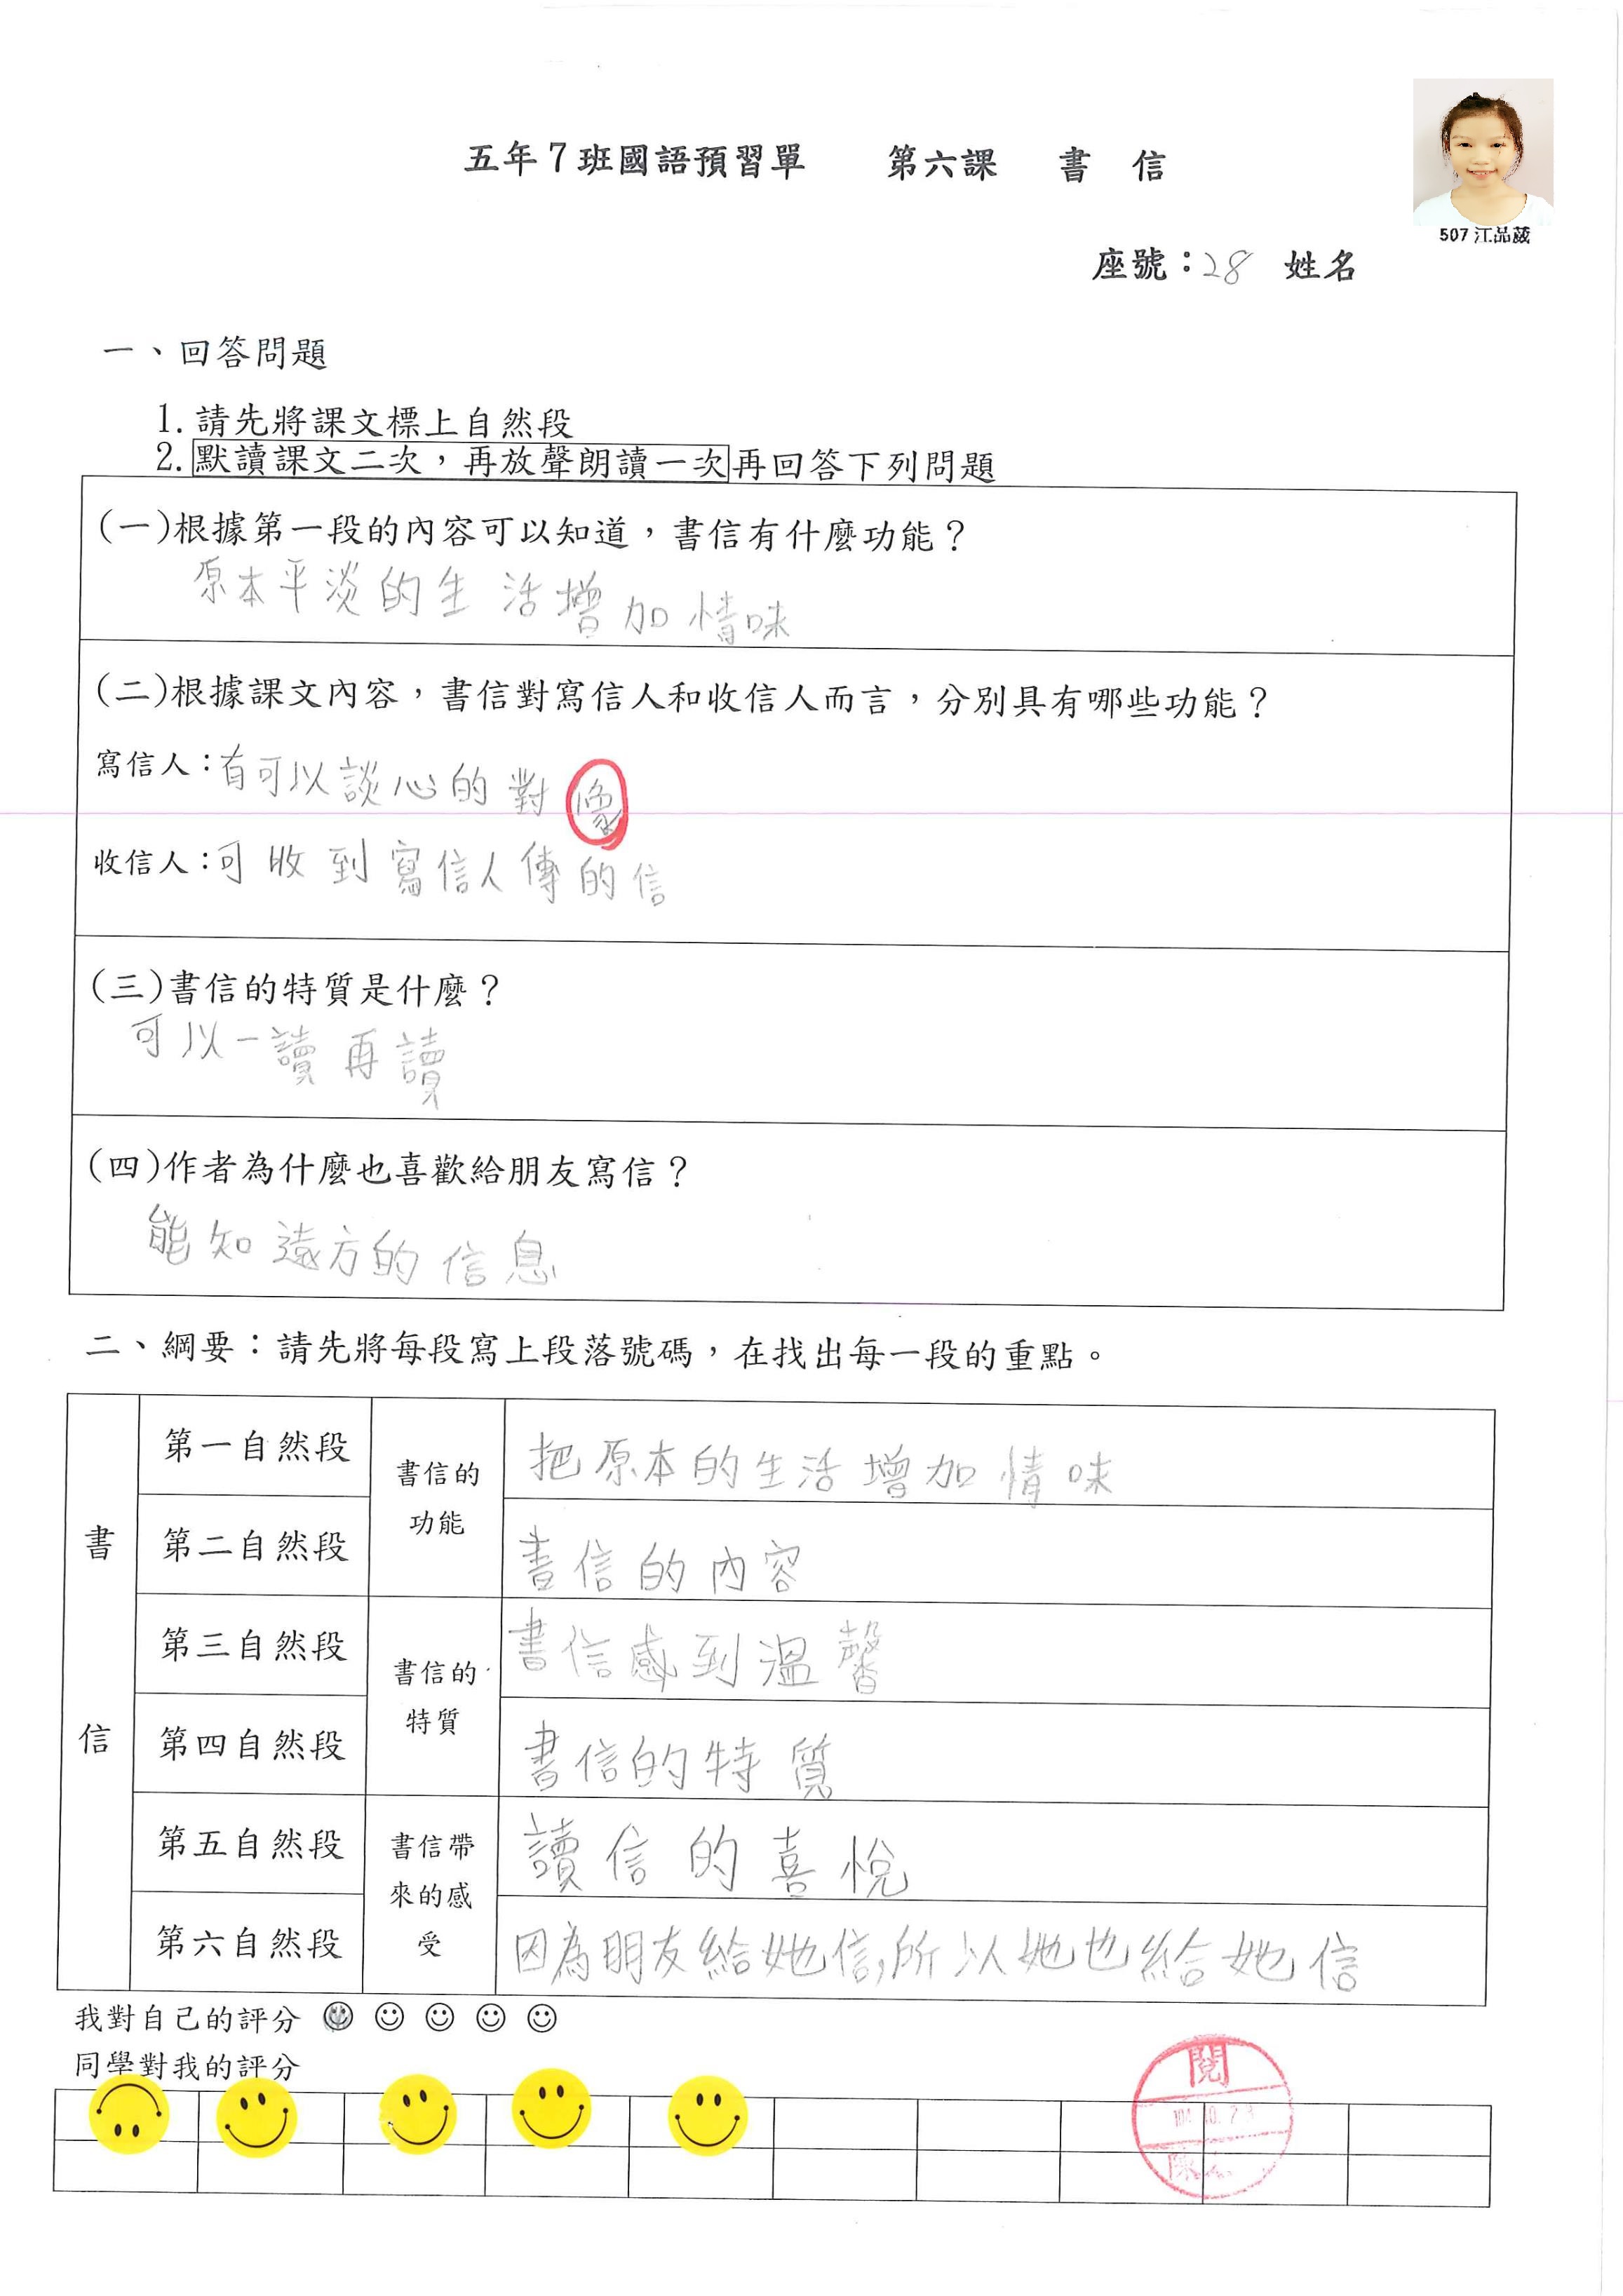 五年7班國語預習單 第六課 書 信
507 江品葳
座號：28 姓名
一、回答問題
1. 請先將課文標上自然段
2. 默讀課文二次，再放聲朗讀一次再回答下列問題
(一)根據第一段的內容可以知道，書信有什麼功能？
原本平淡的生活增加情味
(二)根據課文內容，書信對寫信人和收信人而言，分別具有哪些功能？
寫信人：有可以談心的對
收信人：可收到寫信人傳的信
(三)書信的特質是什麼？
可以一讀再讀
(四)作者為什麼也喜歡給朋友寫信？
能知遠方的信息
二、綱要：請先將每段寫上段落號碼，在找出每一段的重點。
書信
第一自然段 書信的功能 把原本的生活增加情味
第二自然段 書信的內容
第三自然段 書信的特質 書信感到溫馨
第四自然段 書信的特質
第五自然段 書信帶來的感受 讀信的喜悅
第六自然段 因為朋友給她信,所以她也給她信
我對自己的評分
同學對我的評分
閱